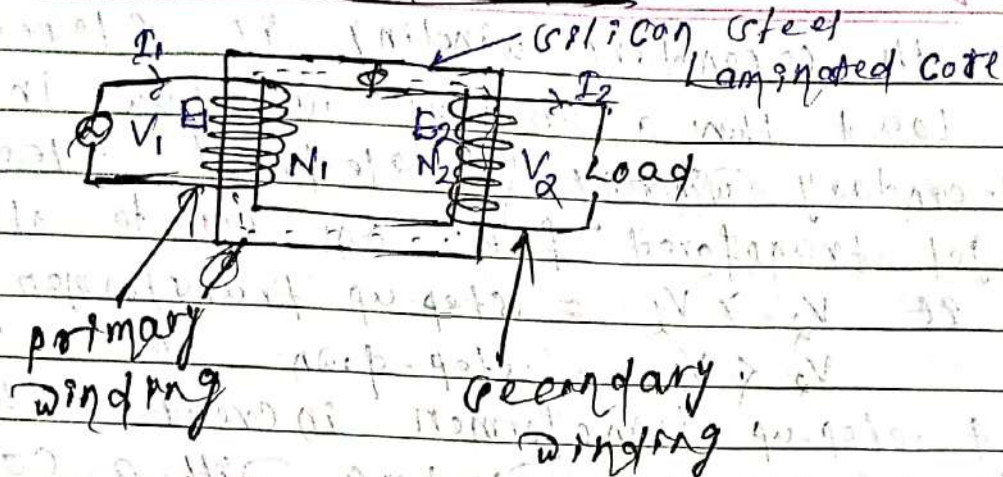 silicon steel
Laminated Core
I1
ϕ
I2
V1
E1
E2
N1
N2
V2
Load
ϕ
primary
winding
secondary
winding